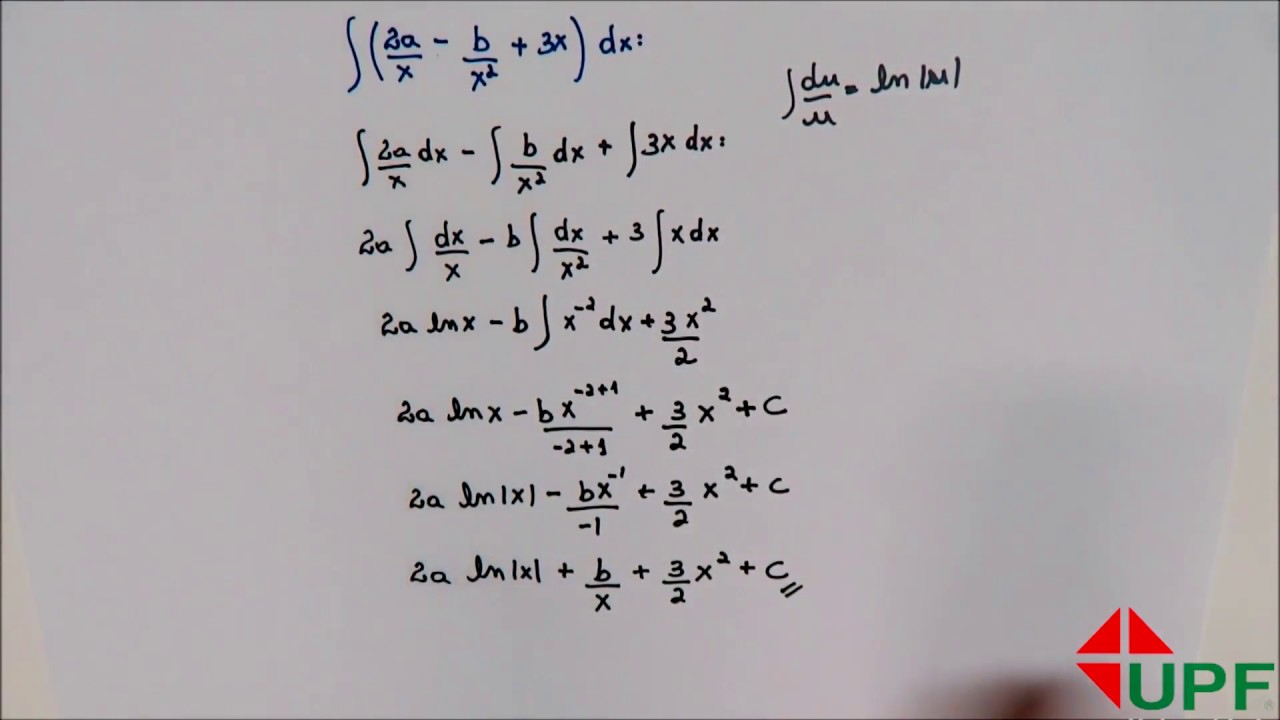 ∫(2a/x - b/x² + 3x) dx:
∫du/u = ln|u|
∫2a/x dx - ∫b/x² dx + ∫3x dx:
2a ∫dx/x - b ∫dx/x² + 3 ∫x dx
2a lnx - b ∫x⁻² dx + 3x²/2
2a lnx - bx⁻²⁺¹/-2+1 + 3/2 x² + C
2a ln|x| - bx⁻¹/-1 + 3/2 x² + C
2a ln|x| + b/x + 3/2 x² + C
UPF